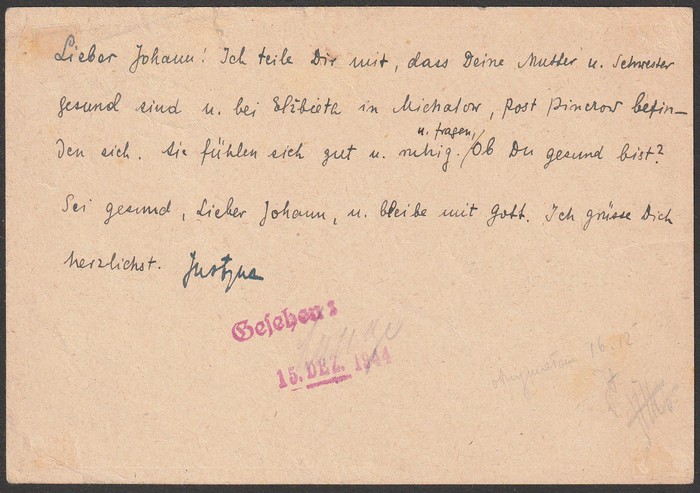 Lieber Johann! Ich teile Dir mit, dass Deine Mutter u. Schwester
gesund sind u. bei Elżbieta in Michałow, Post Pinczow befin-
u. fragen,
den sich. Sie fühlen sich gut u. ruhig. Ob Du gesund bist?
Sei gesund, Lieber Johann, u. bleibe mit Gott. Ich grüsse Dich
herzlichst. Justyna
Gesehen:
15. DEZ. 1944
16.12